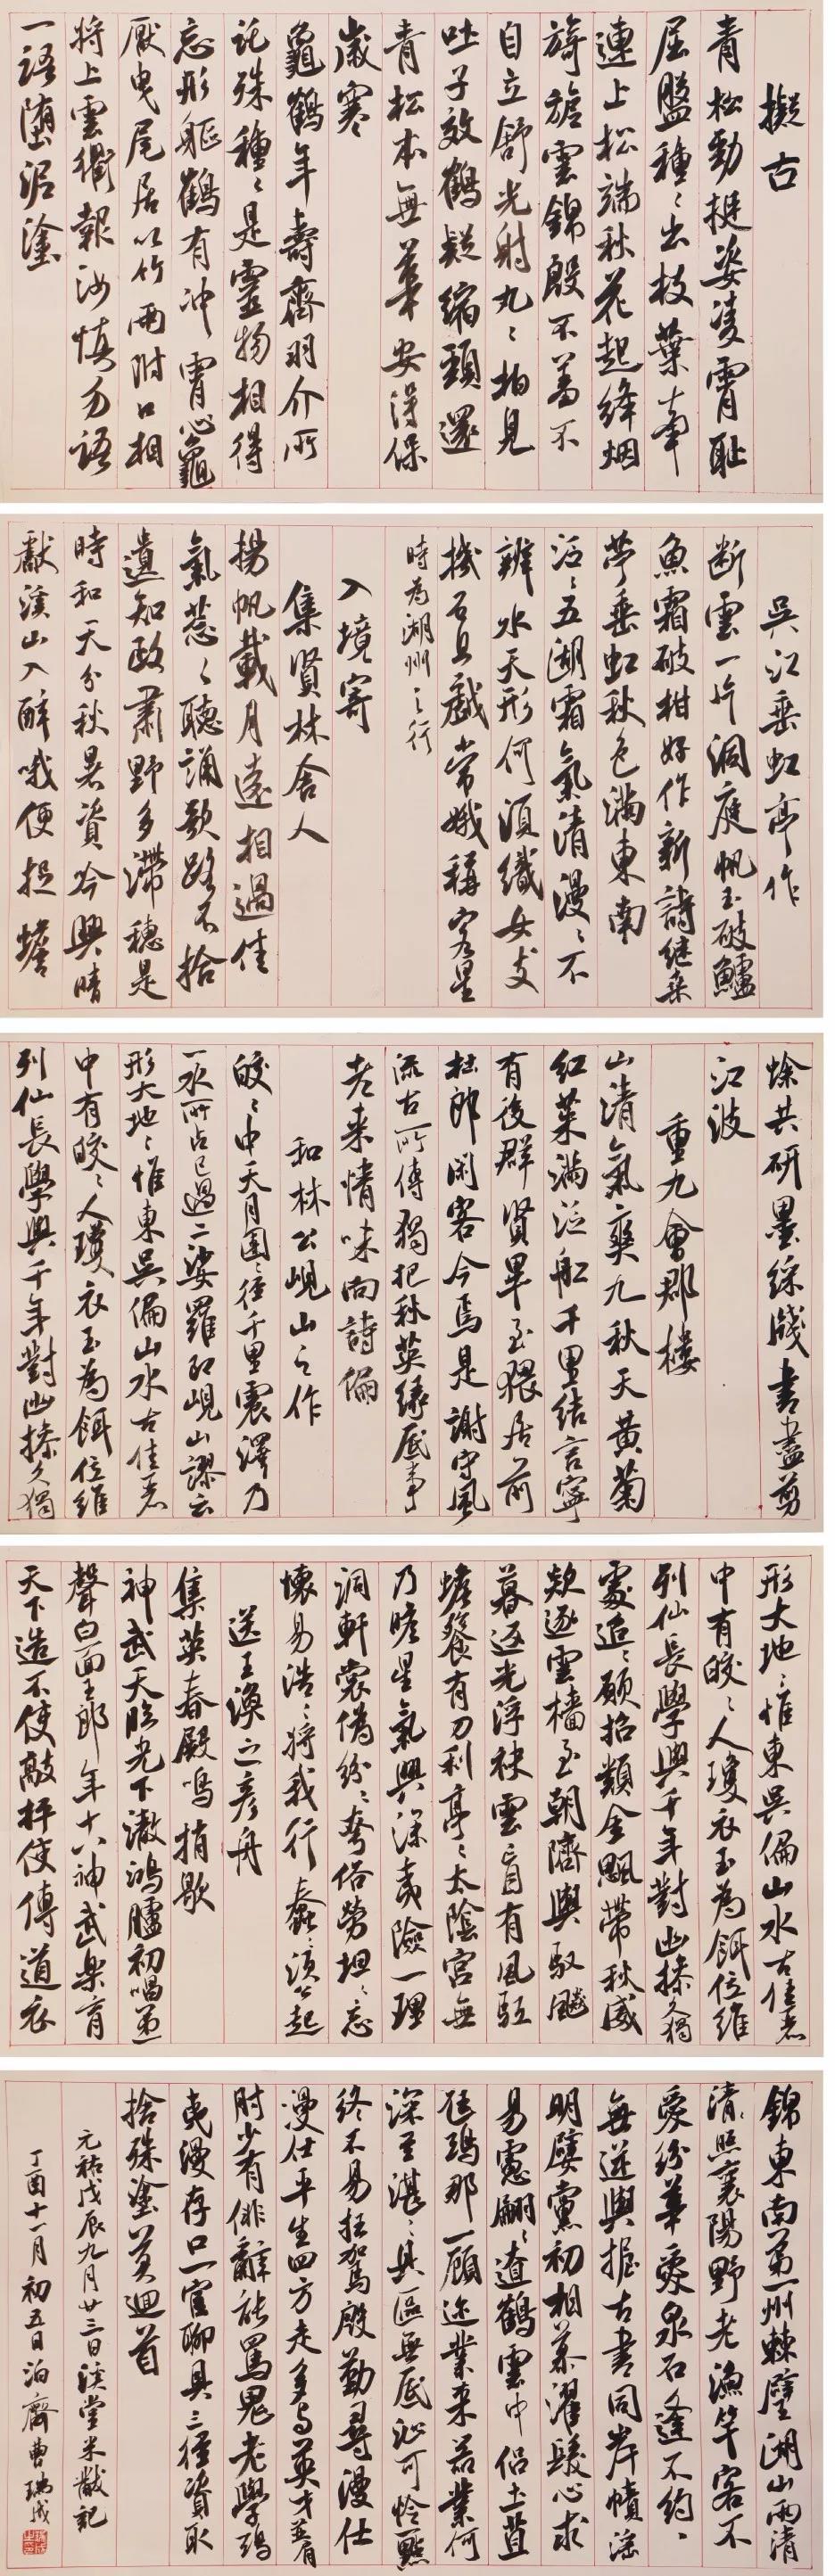 擬古
青松勁挺姿凌霄恥
屈盤種〻出枝葉牽
連上松端秋花起絳烟
旖旎雲錦殷不羞不
自立舒光射丸〻柏見
吐子效鶴疑縮頸還
青松本無華安得保
歲寒
龜鶴年壽齊羽介所
託殊種〻是靈物相得
忘形軀鶴有冲霄心龜
厭曳尾居以竹兩附口相
將上雲衢報汝慎勿語
一語墮泥塗
吳江垂虹亭作
断雲一片洞庭帆玉破鱸
魚霜破柑好作新詩継桑
苧垂虹秋色滿東南
泛〻五湖霜氣清漫〻不
辨水天形何須織女支
機石且戲常娥稱客星
時為湖州之行
入境寄
集賢林舍人
揚帆載月遠相過佳
氣蔥〻聽誦歌路不拾
遺知政肅野多滯穗是
時和天分秋暑資吟興晴
獻溪山入醉哦便捉蟾
蜍共研墨綵牋書盡剪
江波
重九會郡樓
山清氣爽九秋天黄菊
紅茱滿泛船千里結言寧
有後群賢畢至猥居前
杜郎閑客今焉是謝守風
流古所傳獨把秋英緣底事
老来情味向詩偏
和林公峴山之作
皎〻中天月團〻徑千里震澤乃
一水所占已過二娑羅即峴山謬云
形大地〻惟東吳偏山水古佳麗
中有皎〻人瓊衣玉為餌位維
列仙長學與千年對幽操久獨
形大地〻惟東吳偏山水古佳麗
中有皎〻人瓊衣玉為餌位維
列仙長學與千年對幽操久獨
處追〻願招類金飃帶秋威
欻逐雲檣至朝隮輿馭飈
暮返光浮袂雲盲有風駈
蟾餮有刀利亭〻太陰宮無
乃瞻星氣興深夷險一理
洞軒裳偽紛〻夸俗勞坦〻忘
懷易浩〻將我行蠢〻須公起
送王渙之彥舟
集英春殿鳴捎歇
神武天臨光下澈鴻臚初唱第
聲白面王郎年十八神武樂育
天下造不使敲枰使傳道衣
錦東南第一州棘璧湖山兩清
清照襄陽野老漁竿客不
愛紛華愛泉石逢不約〻
無逆與握古書同岸幘淫
明嬖黨初相慕濯髮洗心求
易慮翩〻遼鶴雲中侶土苴
尫鴟那一顧迩業来器業何
深至湛〻具區無底沚可憐一點
終不易枉駕殷勤尋漫仕
漫仕平生四方走多与英才並肩
肘少有俳辭能罵鬼老學鴟
夷漫存口一官聊具三徑資取
捨殊塗莫迴首
元祐戊辰九月廿三日溪堂米黻記
丁酉十一月初五日泊齋曹瑞成